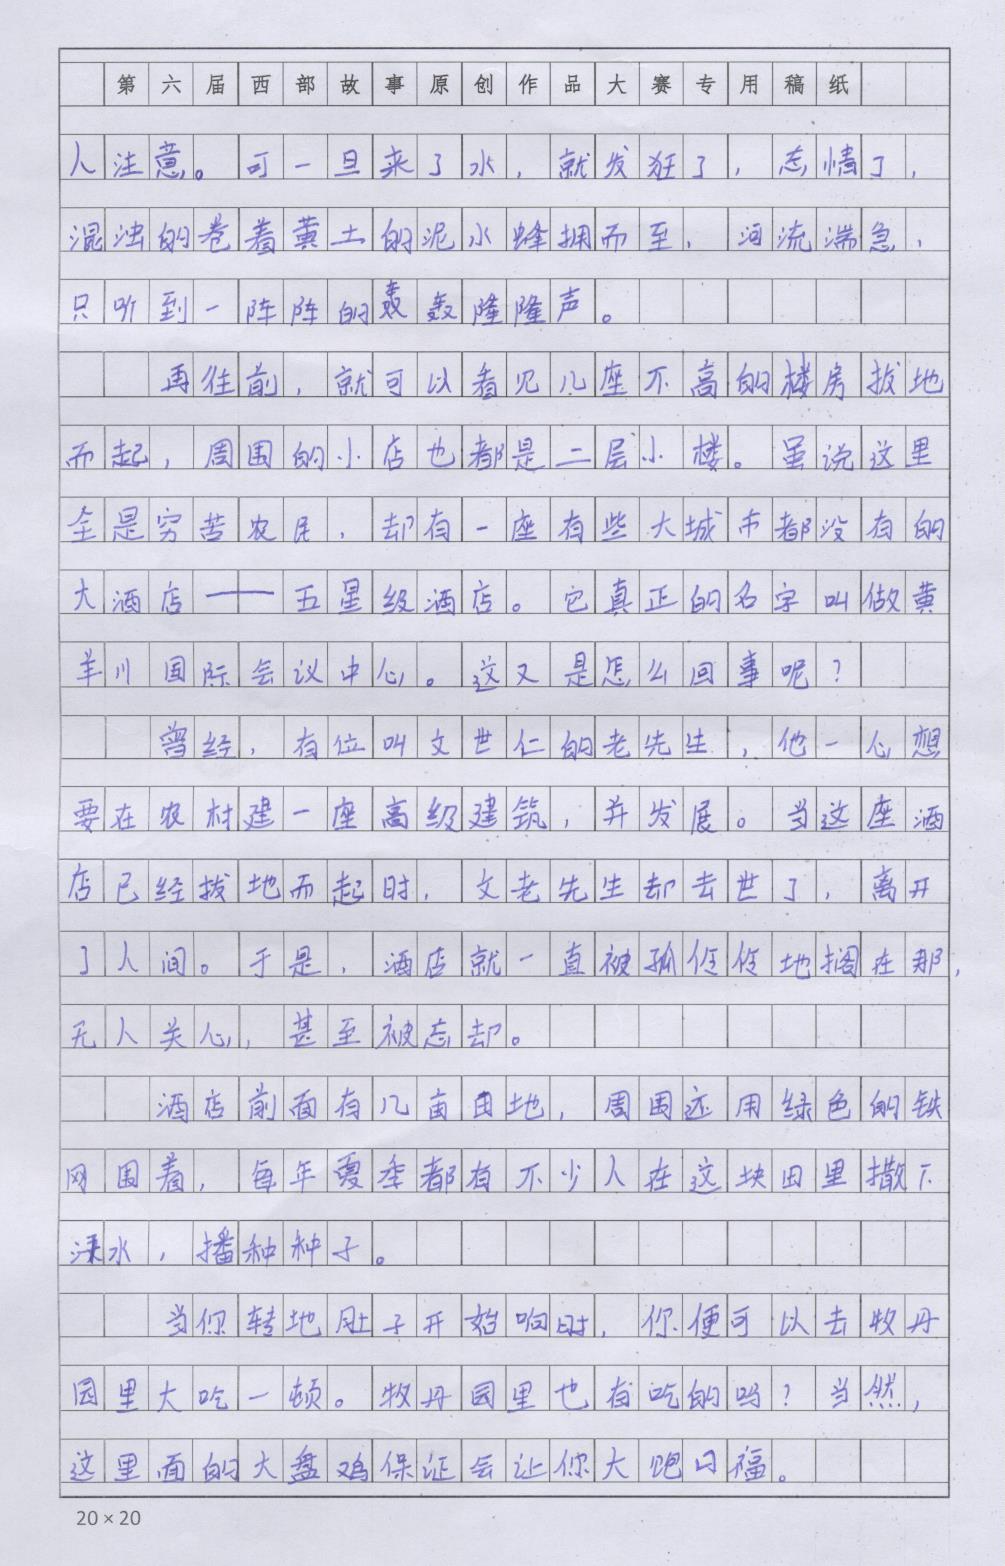 第六届西部故事原创作品大赛专用稿纸
人注意。可一旦来了水，就发狂了，忘情了，
混浊的卷着黄土的泥水蜂拥而至，河流湍急，
只听到一阵阵的轰轰隆隆声。
再往前，就可以看见几座不高的楼房拔地
而起，周围的小店也都是二层小楼。虽说这里
全是穷苦农民，却有一座有些大城市都没有的
大酒店——五星级酒店。它真正的名字叫做黄
羊川国际会议中心。这又是怎么回事呢？
曾经，有位叫文世仁的老先生，他一心想
要在农村建一座高级建筑，并发展。当这座酒
店已经拔地而起时，文老先生却去世了，离开
了人间。于是，酒店就一直被孤伶伶地搁在那，
无人关心，甚至被忘却。
酒店前面有几亩田地，周围还用绿色的铁
网围着，每年夏季都有不少人在这块田里撒下
水，播种种子。
当你转地肚子开始响时，你便可以去牧丹
园里大吃一顿。牧丹园里也有吃的吗？当然，
这里面的大盘鸡保证会让你大饱口福。
20×20